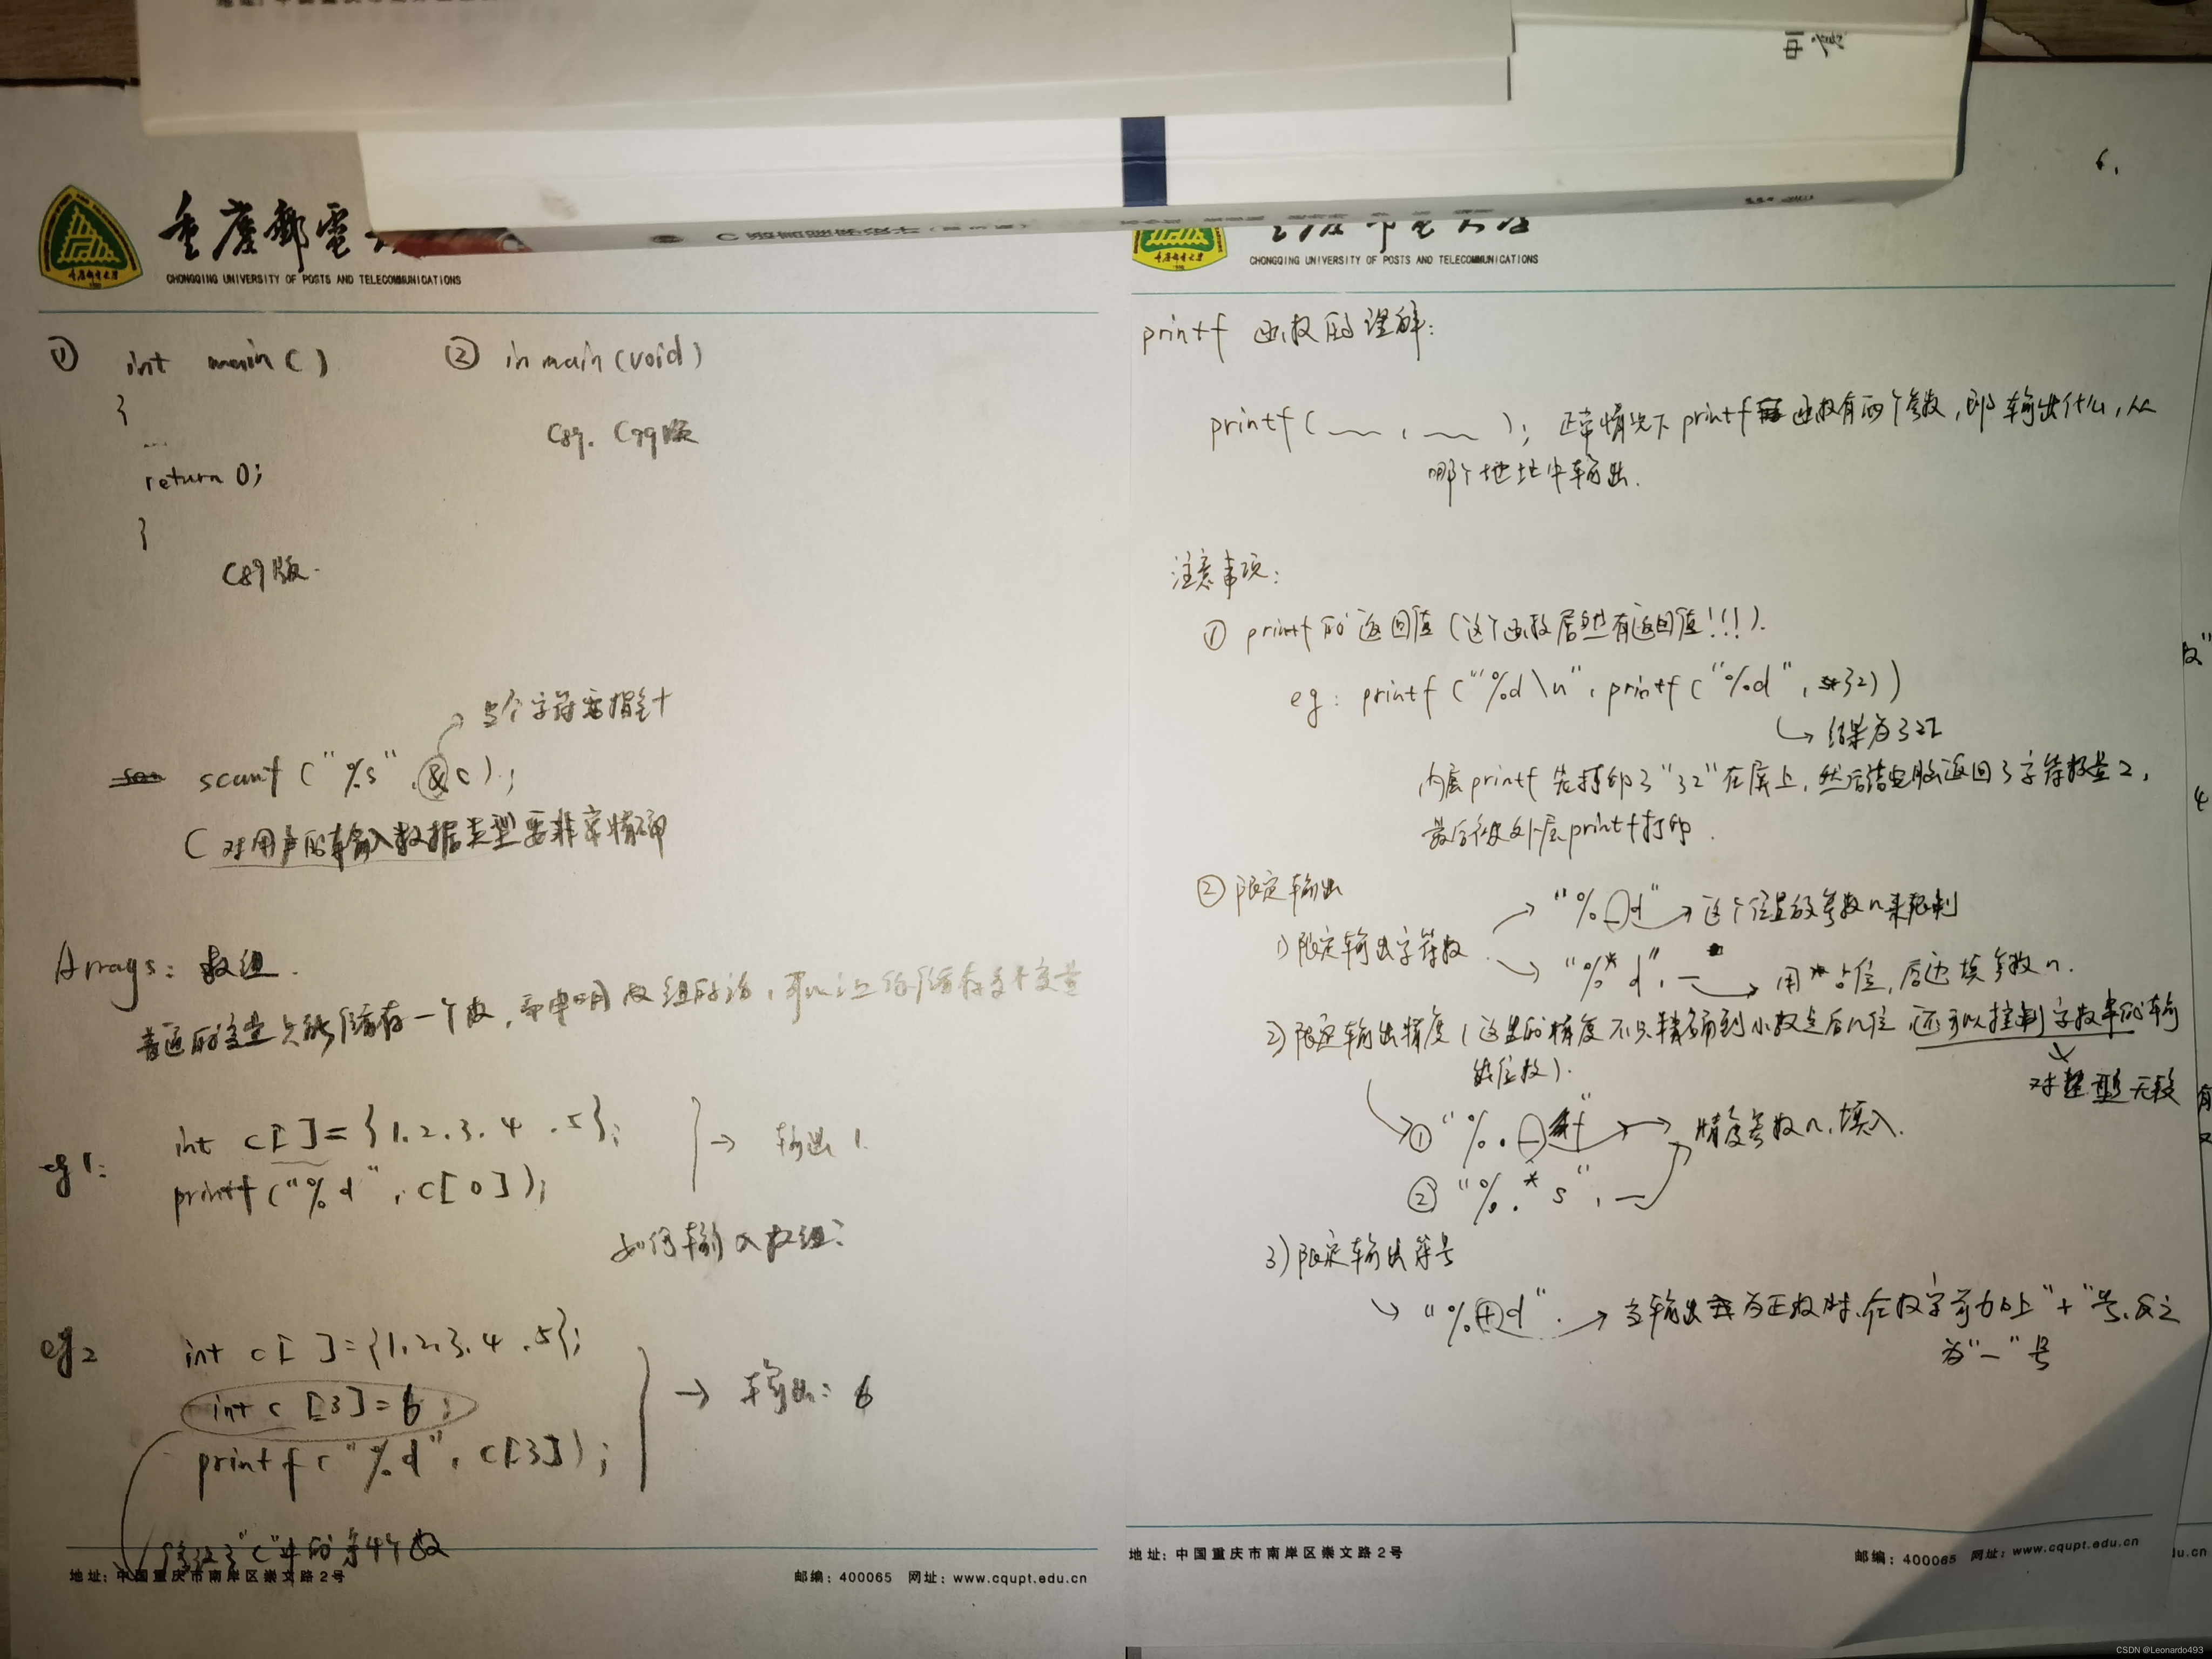 重慶郵電
CHONGQING UNIVERSITY OF POSTS AND TELECOMMUNICATIONS
① int main ( )
{
...
return 0;
}
C89版.
② in main (void)
C89. C99版
字符要指针
scanf ("%s", &c);
C 对用户的输入数据类型要非常精确
Arrays: 数组.
普通的变量只能储存一个数,而申明数组的话,可以让你储存多个变量
eg1:
int c[ ]={1.2.3.4.5};
printf ("%d", c[0]);
→ 输出 1.
如何输入数组:
eg2
int c[ ]={1.2.3.4.5};
int c [3]=6;
printf ("%d", c[3]);
→ 输出: 6
修改了"c"中的第4个数
地址: 中国重庆市南岸区崇文路2号
邮编: 400065 网址: www.cqupt.edu.cn
6.
CHONGQING UNIVERSITY OF POSTS AND TELECOMMUNICATIONS
printf 函数的理解:
printf ( , ); 正常情况下 printf 函数有两个参数,即输出什么,从
哪个地址中输出.
注意事项:
① printf 的返回值 (这个函数居然有返回值!!!).
eg: printf ("%d\n", printf ("%d", 32))
↳ 结果为322
内层printf 先打印了"32"在屏上,然后请电脑返回了字符数量2,
最后被外层printf打印.
② 限定输出
1) 限定输出字符数
"% d" → 这个位置放参数n来限制
"%* d", → 用*占位,后边填参数n.
2) 限定输出精度 (这里的精度不只精确到小数点后n位 还可以控制字数串的输
出位数).
对整型无效
① "%. f" → 精度参数n,填入.
② "%.* s",
3) 限定输出符号
↳ "%+d". → 当输出为正数时,在数字前加上"+"号,反之
为"-"号
地址: 中国重庆市南岸区崇文路2号
邮编: 400065 网址: www.cqupt.edu.cn
CSDN @Leonardo493